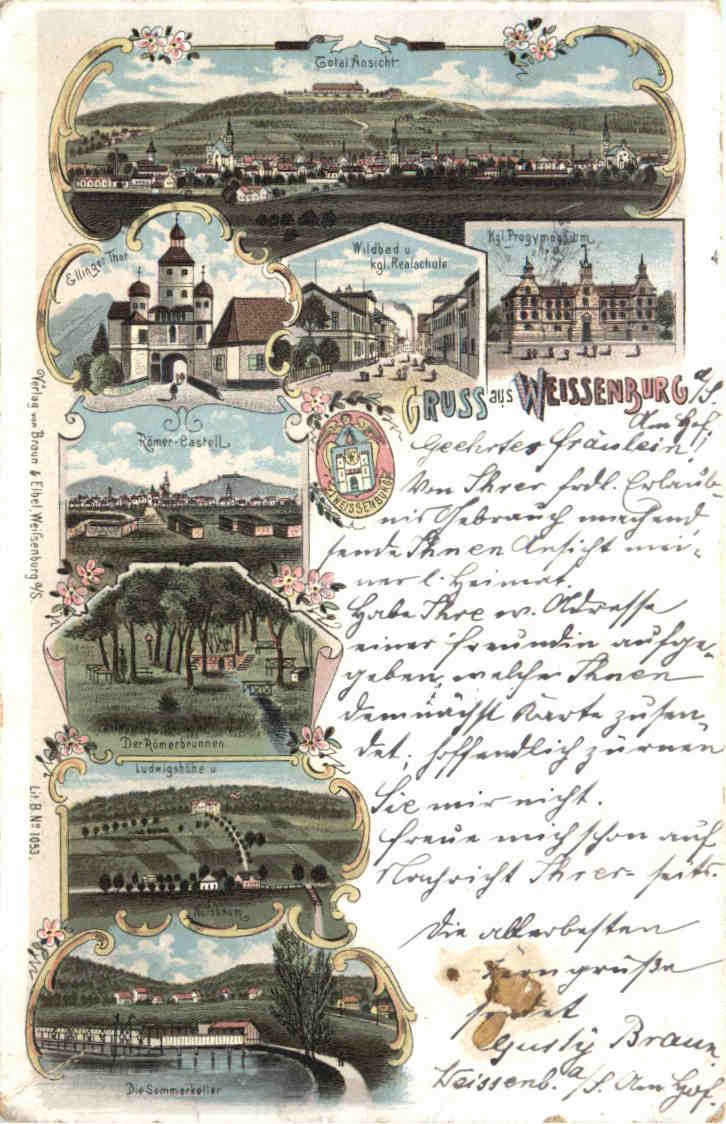 Total Ansicht
Ellinger Thor
Wildbad u.
kgl. Realschule
Kgl. Progymnasium
GRUSS aus WEISSENBURG a/S
Am Hof.
Geehrtes Fräulein!
Von Ihrer frdl. Erlaub-
nis Gebrauch machend
sende Ihnen Ansicht mei-
ner l. Heimat.
Habe Ihre w. Adresse
einer Freundin aufge-
geben, welche Ihnen
demnächst Karte zusen-
det; hoffendlich zürnen
Sie mir nicht.
Freue mich schon auf
Nachricht Ihrer- seits.
Die allerbesten
Ferngrüße
sendet
Gusty Braun
Weissenb. a/S. Am Hof.
WEISSENBURG
Römer-Castell
Der Römerbrunnen
Ludwigshöhe u
Die Sommerkeller
Verlag von Braun & Elbel Weißenburg a/S.
Lit. B. No 1053.